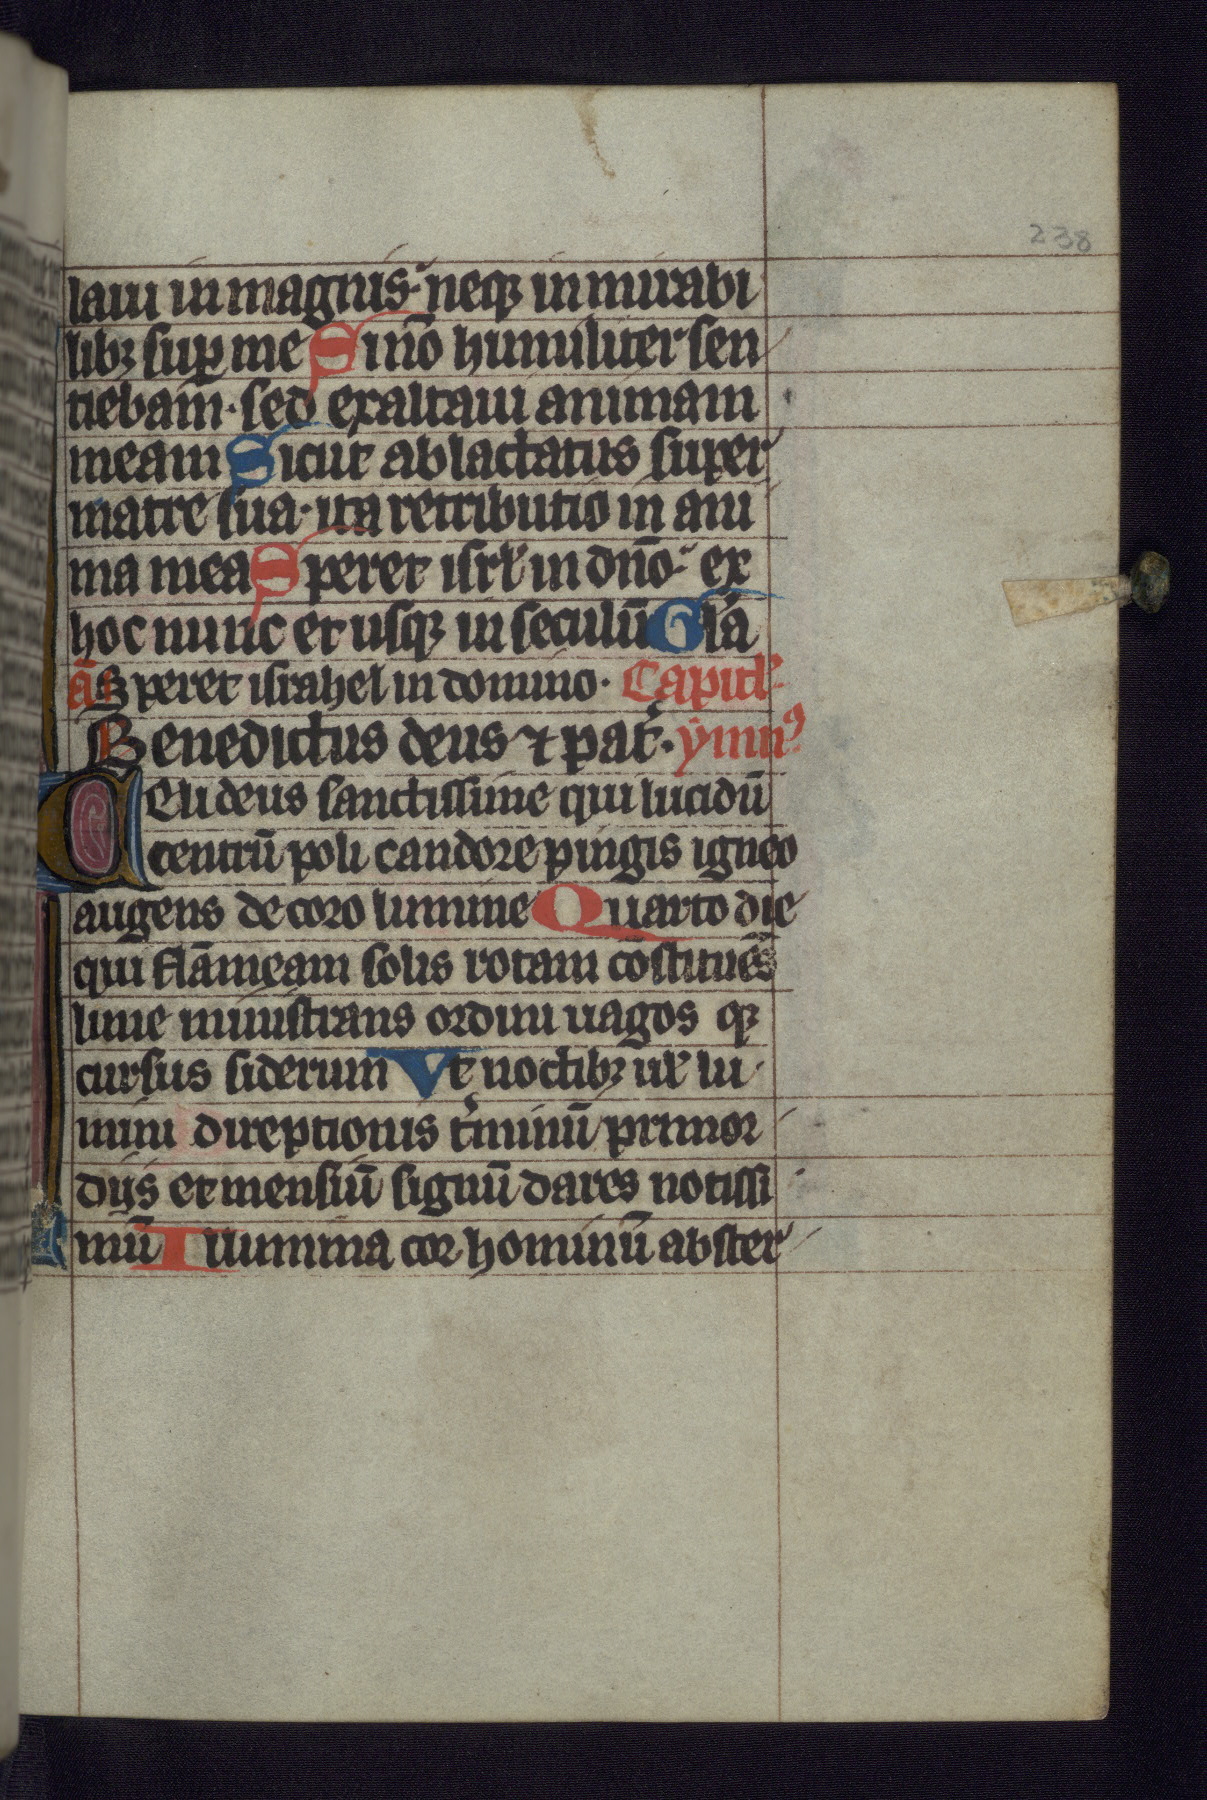 238
laui in magnis· neq₃ in mirabi
lib₃ suꝑ me Si nō humiliter sen
tiebam· sed exaltaui animam
meam Sicut ablactatus super
matre sua· ita retributio in ani
ma mea Speret isrl̄ in dn̄o· ex
hoc nunc et usq₃ in seculū Gl̄a
an̄ Speret israhel in domino· Capitl̄
Benedictus deus ⁊ pat̄· ymnꝰ
Celi deus sanctissime qui lucidū
centrū poli candore pingis igneo
augens decoro lumine Quarto die
qui flāmeam solis rotam cōstituēs
lune ministrans ordini uagos q₃
cursus siderum Vt noctib₃ ul̄ lu
mini direptionis t̄minū primor
dijs et mensiū signū dares notissi
mū Illumina cor hominū abster